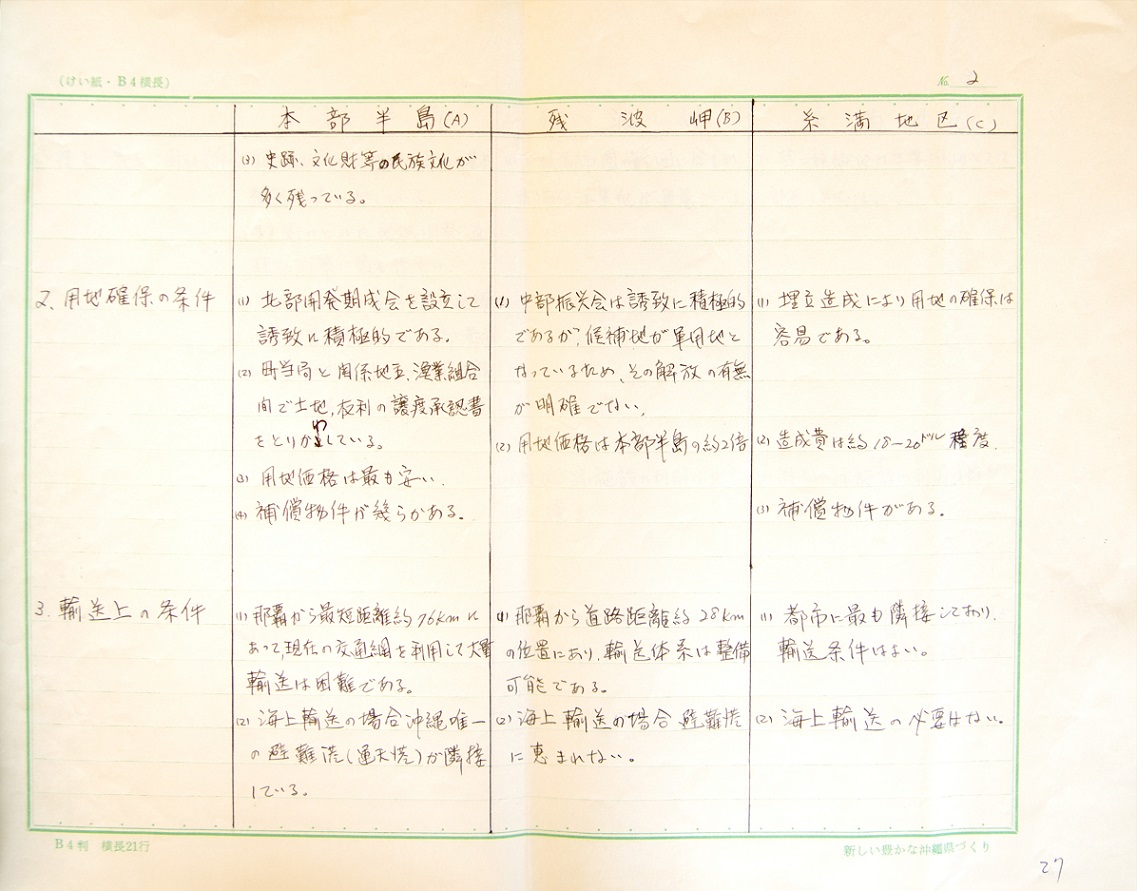 (けい紙・B4横長)
No. 2
本部半島(A)
残波岬(B)
糸満地区(C)
(3) 史跡、文化財等の民族文化が
多く残っている。
2. 用地確保の条件
(1) 北部開発期成会を設立して
誘致に積極的である。
(2) 町当局と関係地主、漁業組合
間で土地,权利の譲渡承認書
をとりかわしている。
(3) 用地価格は最も安い.
(4) 補償物件が幾らかある.
(1) 中部振興会は誘致に積極的
であるが,候補地が軍用地と
なっているため、その解放の有無
が明確でない.
(2) 用地価格は本部半島の約2倍
(1) 埋立造成により用地の確保は
容易である。
(2) 造成費は約18−20ドル程度.
(3) 補償物件がある.
3. 輸送上の条件
(1) 那覇から最短距離約76kmに
あって,現在の交通網を利用して大量
輸送は困難である。
(2) 海上輸送の場合沖縄唯一
の避難港(運天港)が隣接
している。
(1) 那覇から道路距離約28km
の位置にあり.輸送体系は整備
可能である。
(2) 海上輸送の場合避難港
に恵まれない。
(1) 都市に最も隣接しており.
輸送条件はよい。
(2) 海上輸送の必要はない.
B4判 横長21行
新しい豊かな沖縄県づくり
27